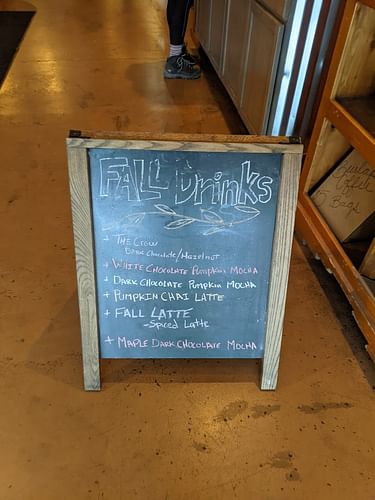 FALL Drinks
+ THE CROW
DARK CHOCOLATE/HAZELNUT
+ WHITE CHOCOLATE PUMPKIN MOCHA
+ DARK CHOCOLATE PUMPKIN MOCHA
+ PUMPKIN CHAI LATTE
+ FALL LATTE
-Spiced Latte
+ MAPLE DARK CHOCOLATE MOCHA
Coffee
5 Bags